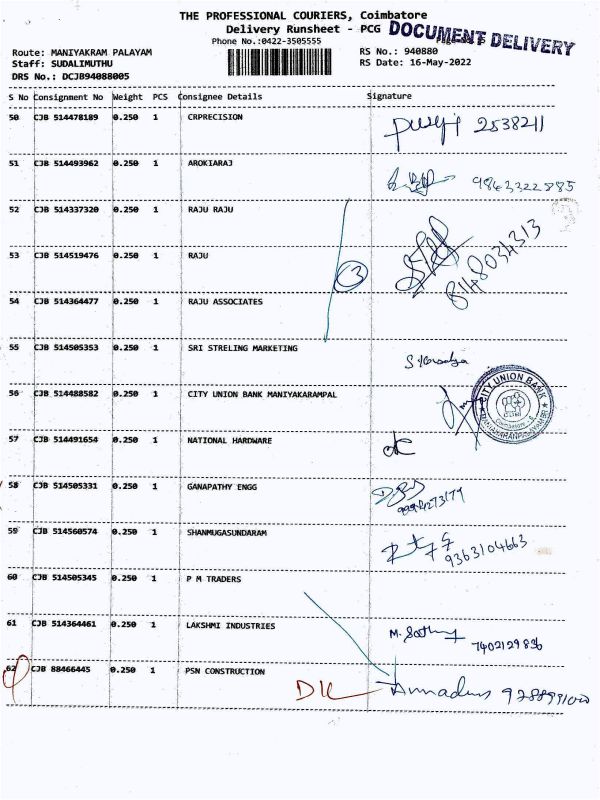 THE PROFESSIONAL COURIERS, Coimbatore
Delivery Runsheet - PCG
DOCUMENT DELIVERY
Phone No.:0422-3505555
Route: MANIYAKRAM PALAYAM
RS No.: 940880
Staff: SUDALIMUTHU
RS Date: 16-May-2022
DRS No.: DCJB94088005
S No Consignment No Weight PCS Consignee Details Signature
50 CJB 514478189 0.250 1 CRPRECISION 2538211
51 CJB 514493962 0.250 1 AROKIARAJ 9843322885
52 CJB 514337320 0.250 1 RAJU RAJU
53 CJB 514519476 0.250 1 RAJU 3 8148034313
54 CJB 514364477 0.250 1 RAJU ASSOCIATES
55 CJB 514505353 0.250 1 SRI STRELING MARKETING
56 CJB 514488582 0.250 1 CITY UNION BANK MANIYAKARAMPAL
CITY UNION BANK
57 CJB 514491654 0.250 1 NATIONAL HARDWARE
58 CJB 514505331 0.250 1 GANAPATHY ENGG
59 CJB 514560574 0.250 1 SHANMUGASUNDARAM 9363104663
60 CJB 514505345 0.250 1 P M TRADERS
61 CJB 514364461 0.250 1 LAKSHMI INDUSTRIES M. 7402129836
62 CJB 88466445 0.250 1 PSN CONSTRUCTION